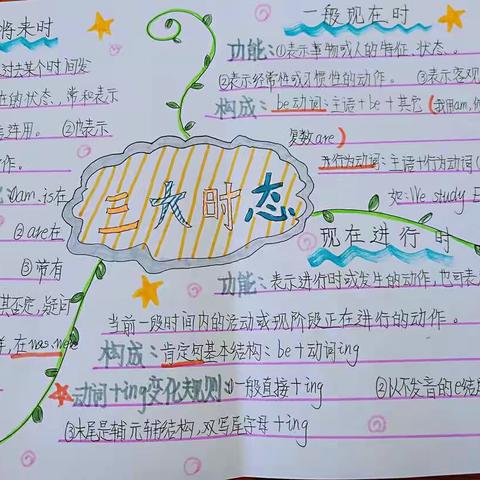 将来时
过去某个时间发
在的状态,常和表示
连用。②也表示
作。
am.is在
②are在
③带有
其否定,疑问
在was.were
三大时态
一般现在时
功能:①表示事物或人的特征、状态、。
②表示经常性或习惯性的动作。 ③表示客观
构成:be动词:主语+be+其它(我用am,你
复数are)
行为动词:主语+行为动词(
如:We study E
现在进行时
功能:表示进行时或发生的动作,也可表
当前一段时间内的活动或现阶段正在进行的动作。
构成:肯定句基本结构:be+动词ing
动词+ing变化规则①一般直接+ing ②以不发音的e结
③末尾是辅元辅结构,双写尾字母+ing